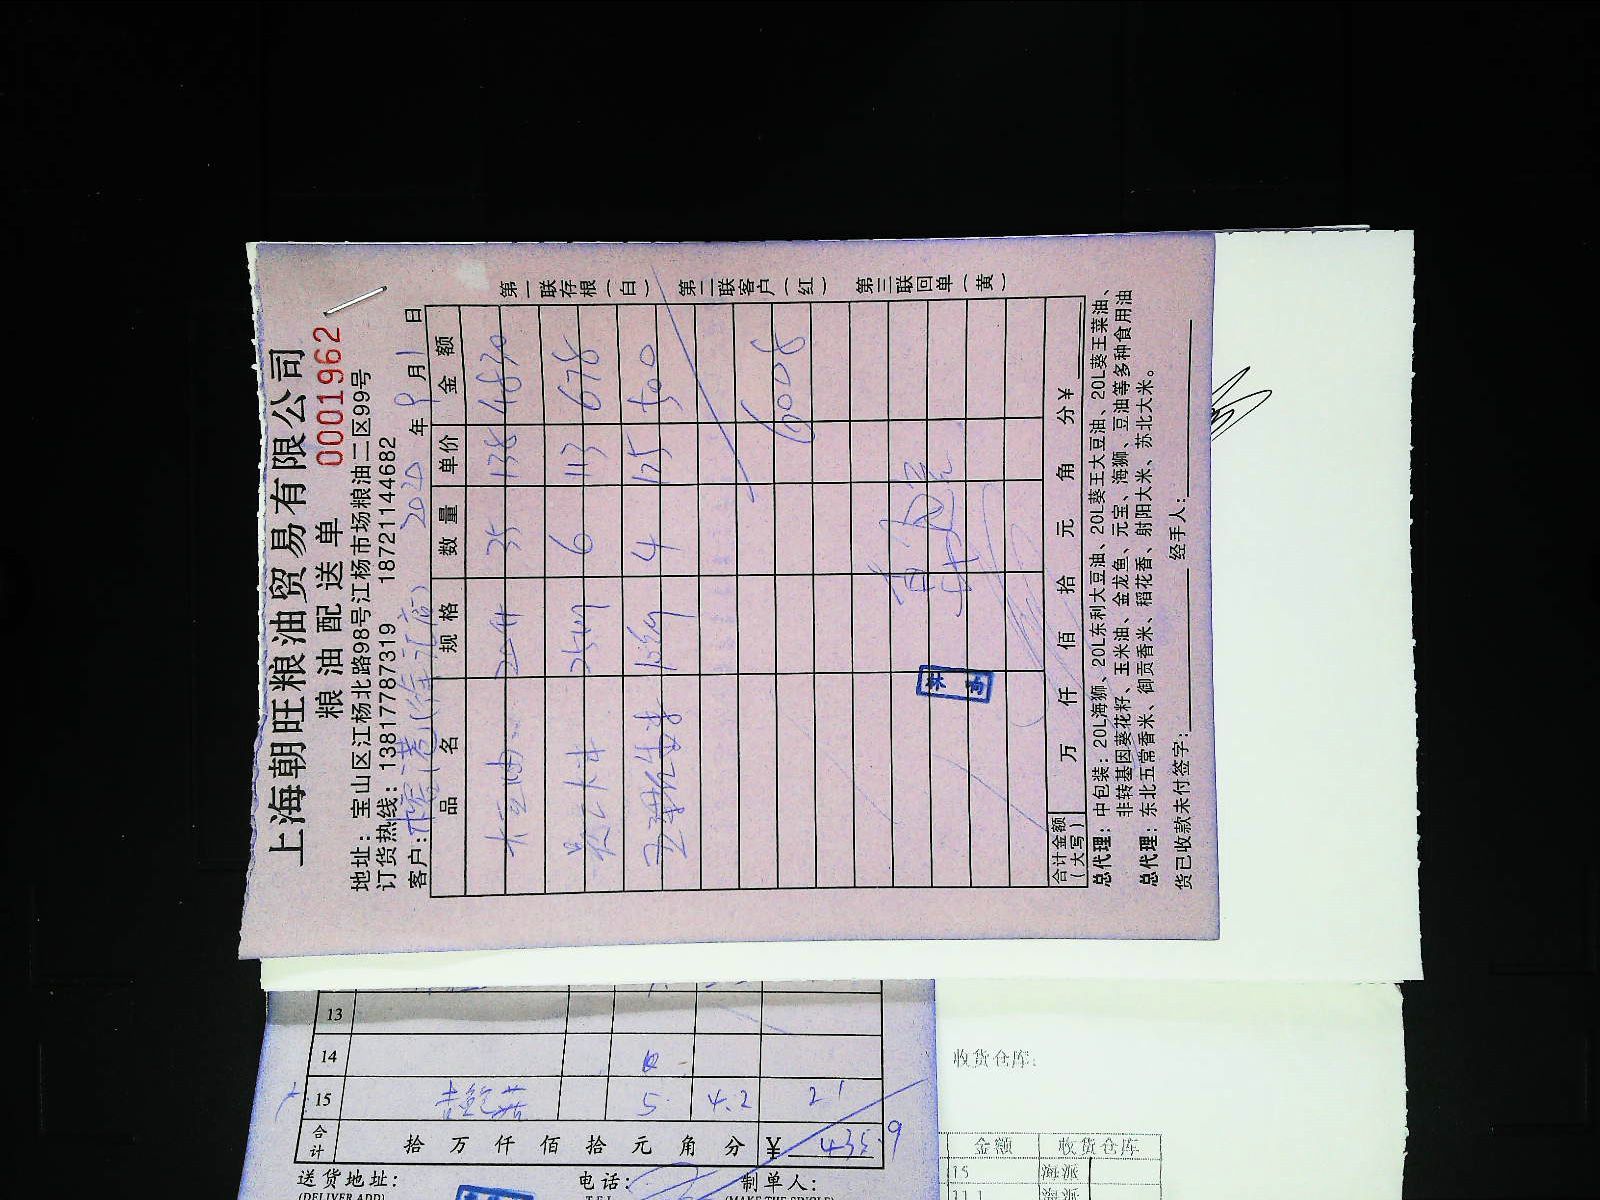 上海朝旺粮油贸易有限公司
粮油配送单 0001962
地址：宝山区江杨北路98号江杨市场粮油二区99号
订货热线：13817787319 18721144682
客户： 2020 年 9 月 1 日
品名 规格 数量 单价 金额
大豆油 20升 35 138 4830
25kg 6 113 678
4 125 500
6008
合计金额（大写） 万 仟 佰 拾 元 角 分 ￥
总代理：中包装：20L海狮、20L东利大豆油、20L葵王大豆油、20L葵王菜油、
非转基因葵花籽、玉米油、金龙鱼、元宝、海狮、豆油等多种食用油
总代理：东北五常香米、御贡香米、稻花香、射阳大米、苏北大米。
货已收款未付签字： 经手人：
第一联存根（白） 第二联客户（红） 第三联回单（黄）
13
14
15 5 4.2 21
合计 拾 万 仟 佰 拾 元 角 分 ￥ 435.9
送货地址： 电话： 制单人：
(DELIVER ADD) TEL (MAKE THE SINGLE)
收货仓库：
金额 收货仓库
15 海派
11.1 海派